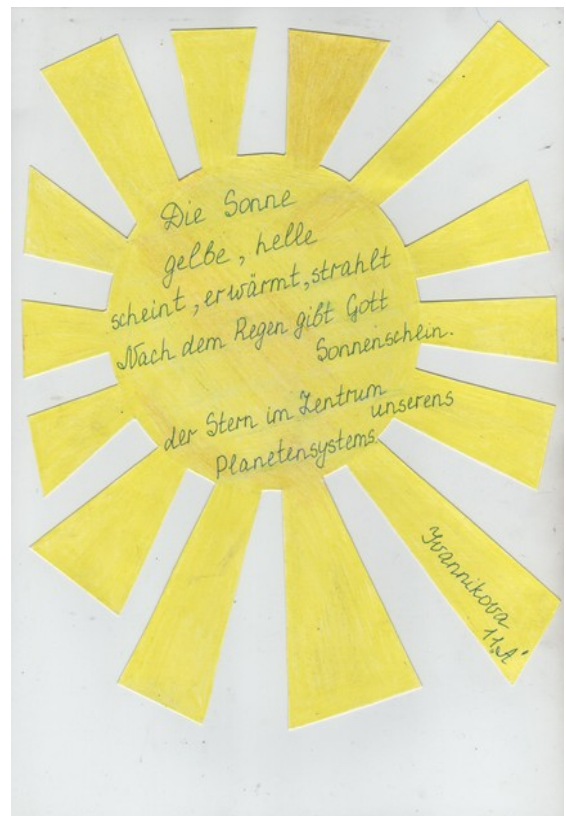 Die Sonne
gelbe, helle
scheint, erwärmt, strahlt
Nach dem Regen gibt Gott
Sonnenschein.
der Stern im Zentrum unserens
Planetensystems.
Yvannikova
11„A"